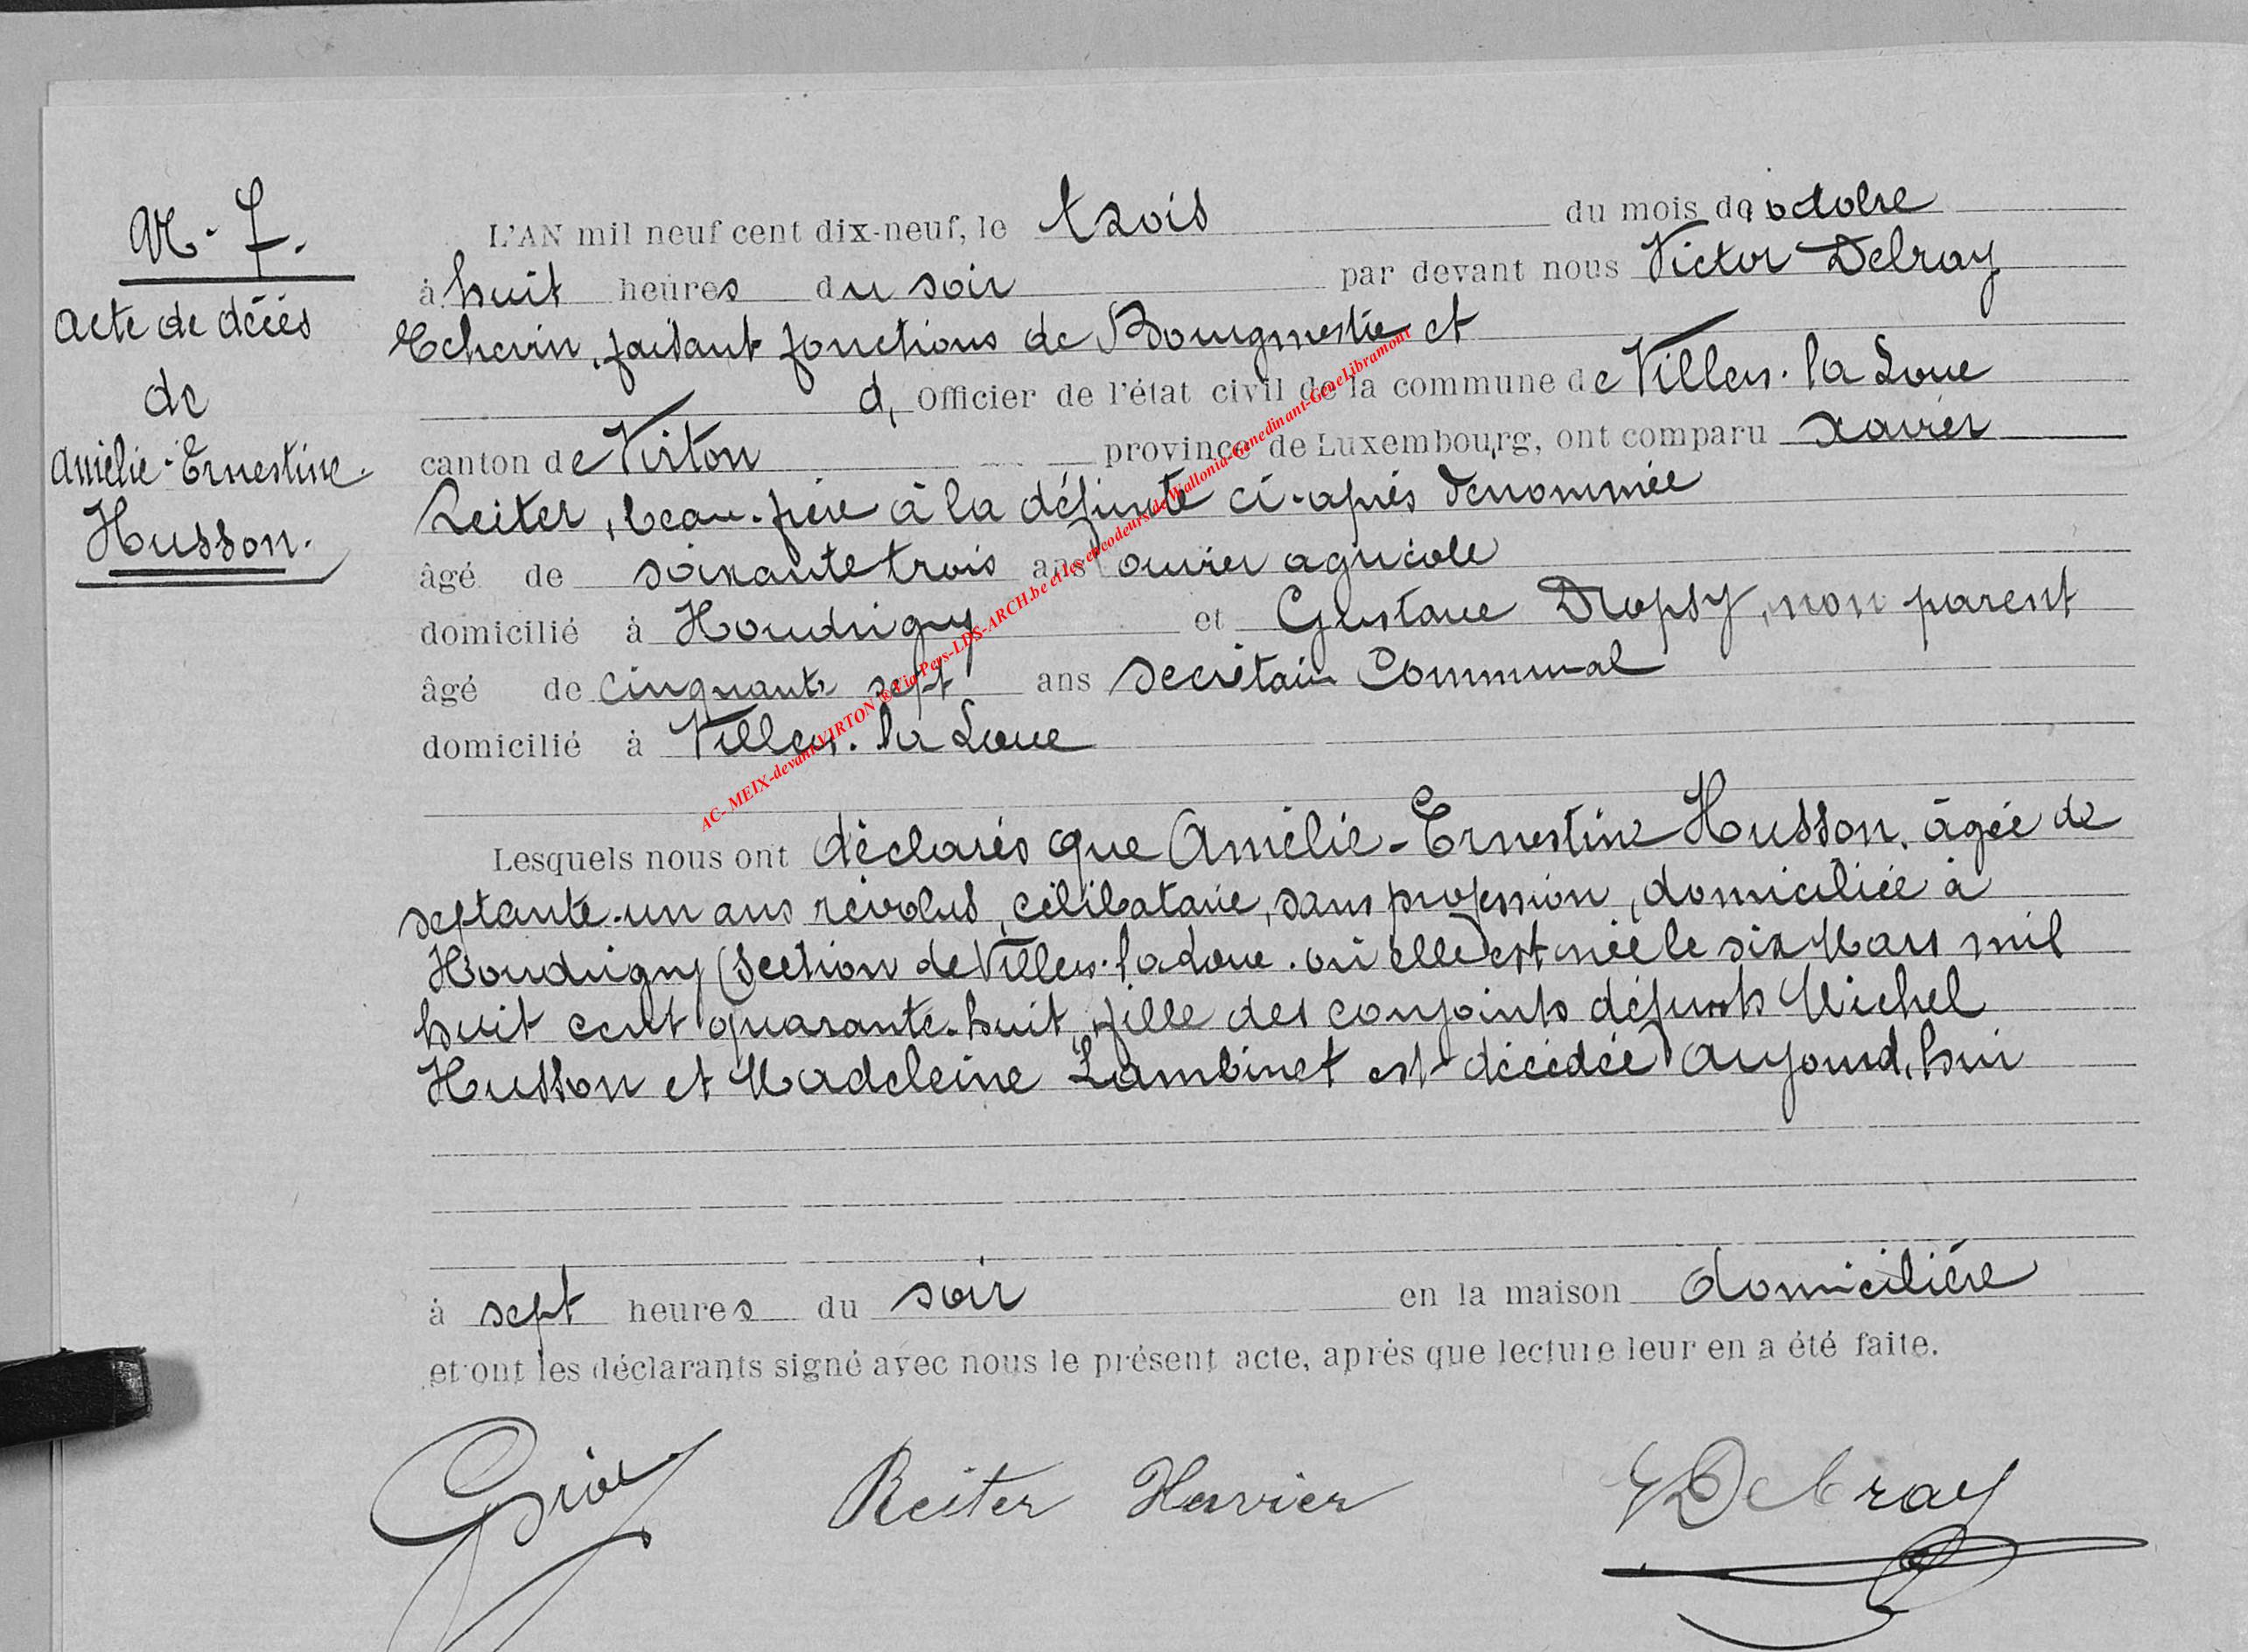 N. 7.
Acte de décès
de
Amélie-Ernestine
Husson.
L'AN mil neuf cent dix-neuf, le trois du mois de octobre
à huit heures du soir par devant nous Victor Delray
Echevin, faisant fonctions de Bourgmestre et
d, Officier de l'état civil de la commune de Villers-la-Loue
canton de Virton province de Luxembourg, ont comparu Xavier
Reiter, beau-frère à la défunte ci-après dénommée
âgé de soixante trois ans ouvrier agricole
domicilié à Houdrigny et Gustave Dropsy, non parent
âgé de cinquante sept ans secrétaire Communal
domicilié à Villers-la-Loue
Lesquels nous ont déclarés que Amélie-Ernestine Husson, âgée de
septante-un ans révolus, célibataire, sans profession, domiciliée à
Houdrigny (section de Villers-la-Loue. où elle est née le six Mars mil
huit cent quarante-huit, fille des conjoints défunts Michel
Husson et Madeleine Lambinet est décédée aujourd'hui
à sept heures du soir en la maison domicilière
et ont les déclarants signé avec nous le présent acte, après que lecture leur en a été faite.
Reiter Xavier
Delray
AC- MEIX-devant-VIRTON ® Via Pers-LDS-ARCH.be et les encodeurs de Wallonia-Genedinant-GeneLibramont